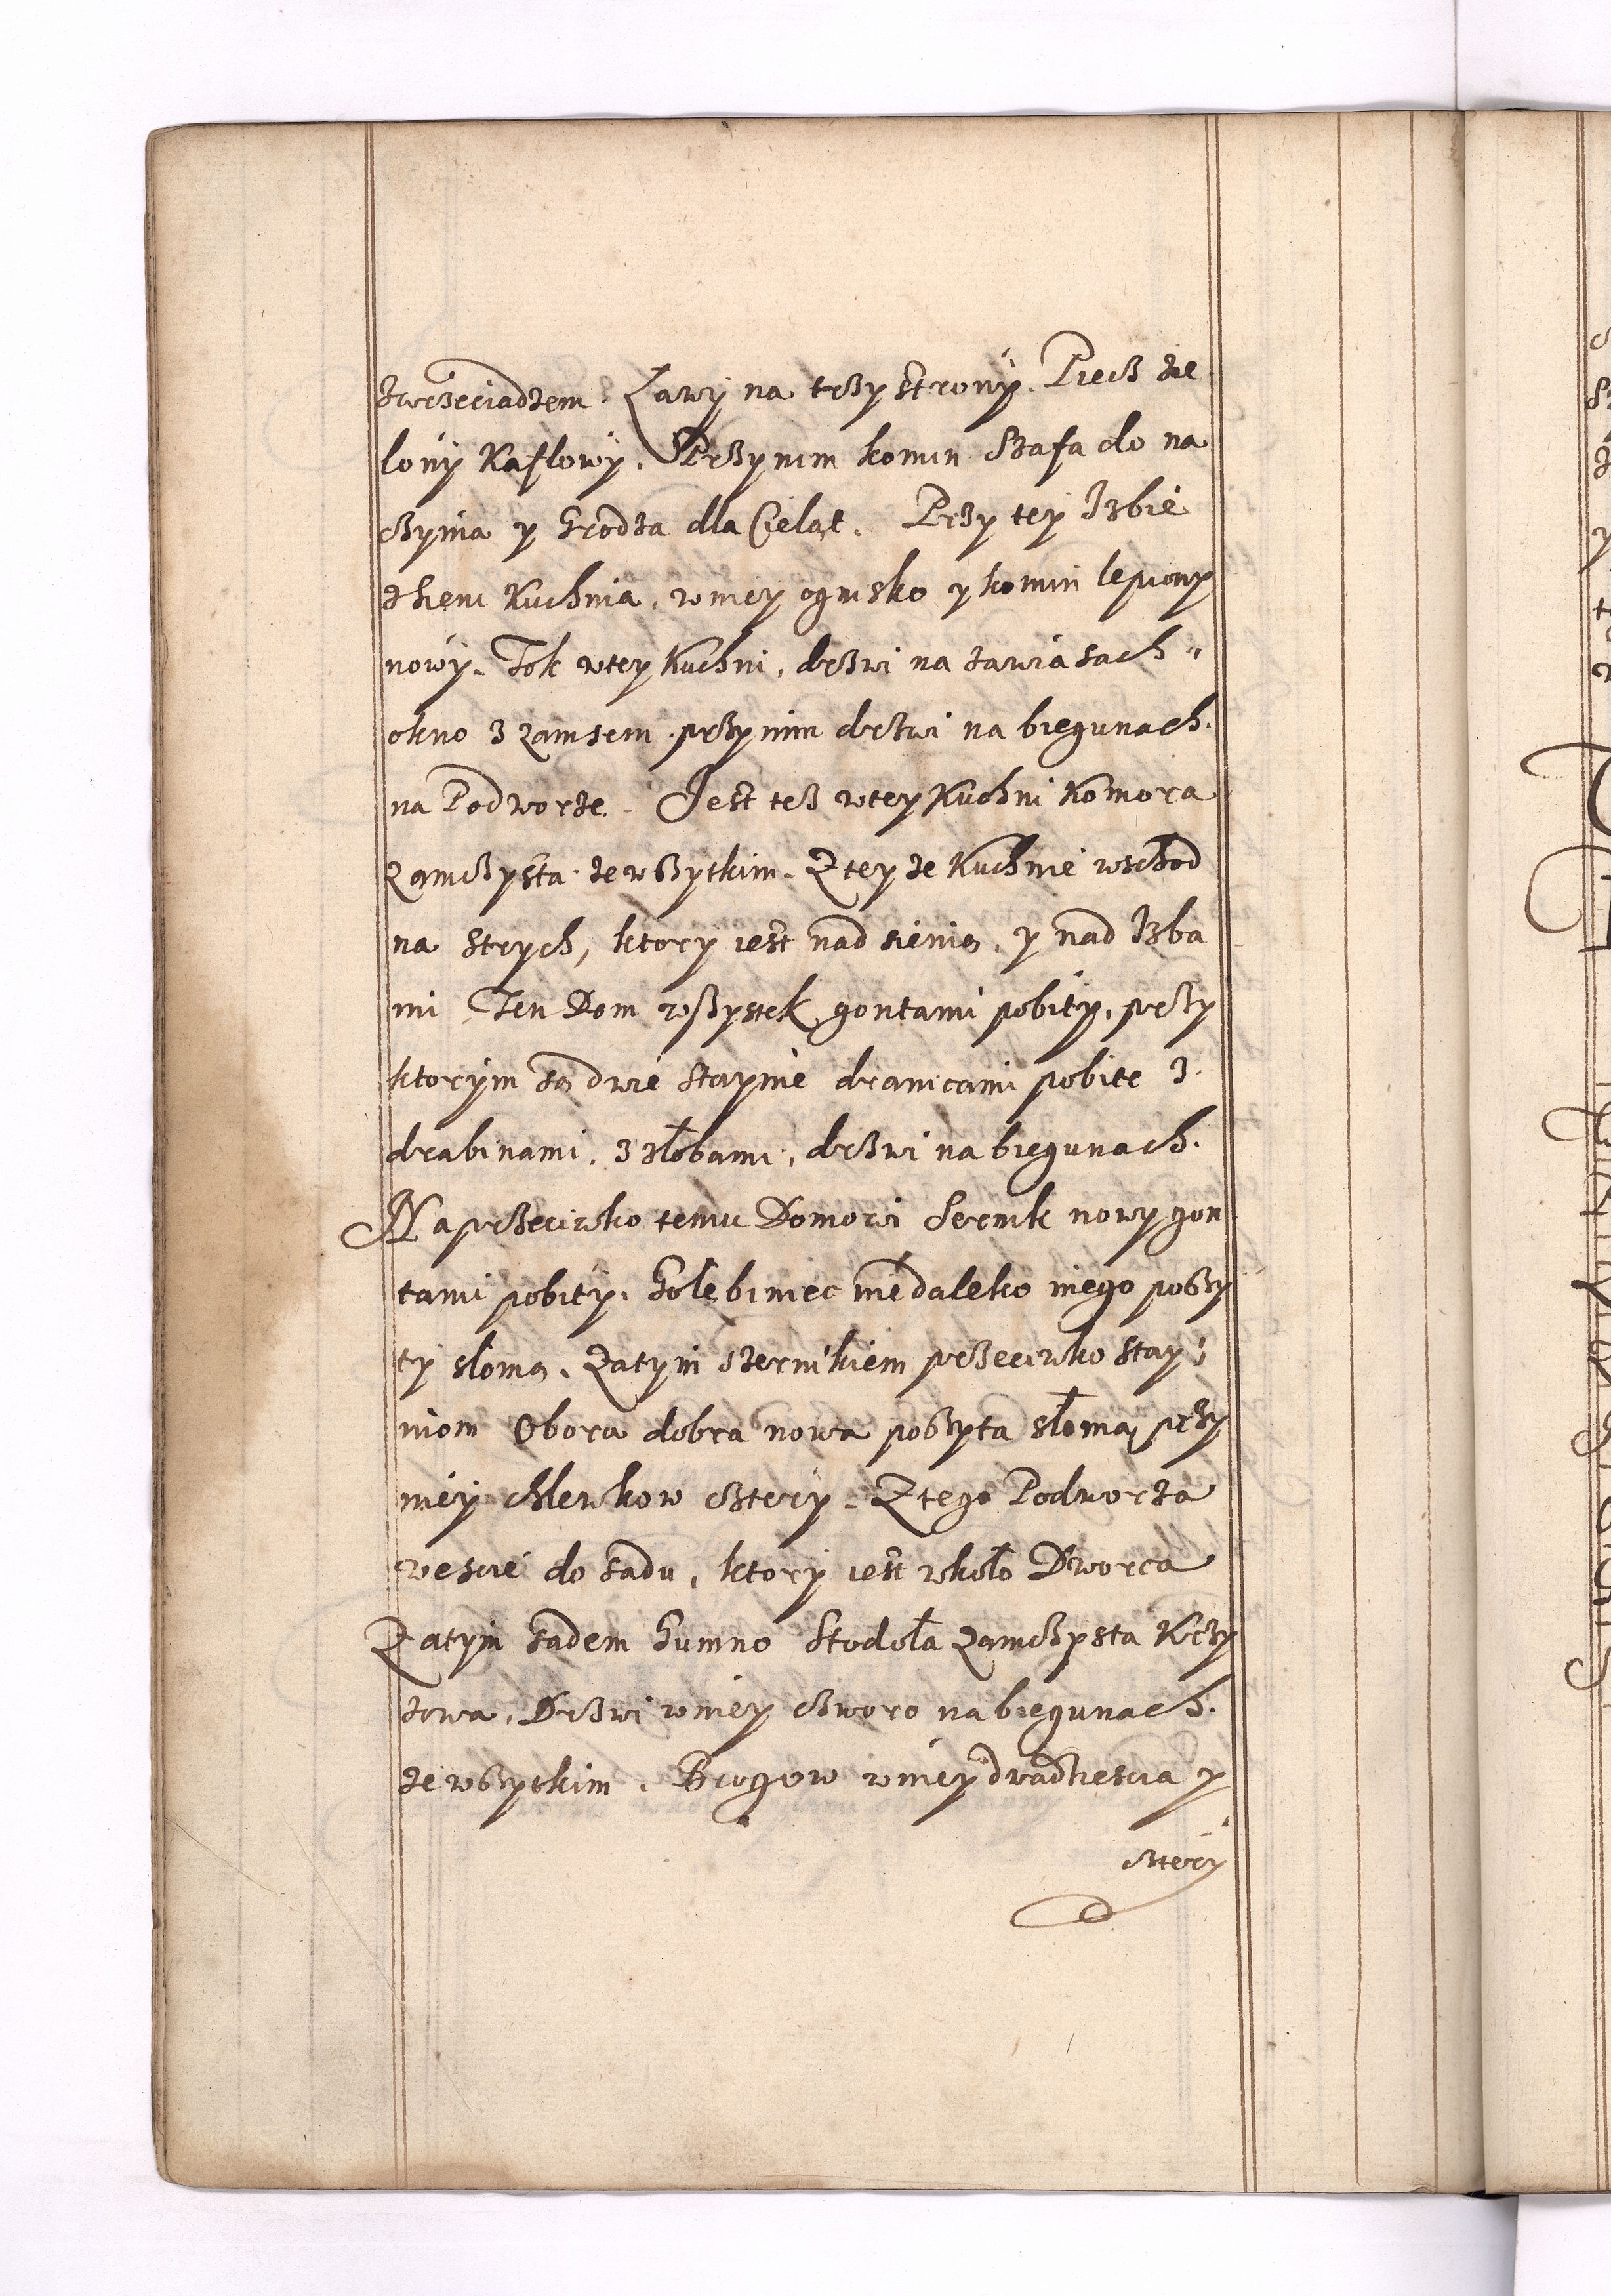 zwrzeciadzem. Ławy na trzy strony. Piecz zie
lony Kaflowy. Przynim komin Szafa do na
czynia y Grodza dla Cieląt. Przy tey Izbie
Kuchnia, wniey ognisko y komin lepiony
nowy. Tok wtey Kuchni, drzwi na zawiasach,
okno z zamsem. przynim drzwi na biegunach.
na Podworze. Jest tesz wtey Kuchni Komora
zamczysta ze wszytkim. Z tey ze Kuchnie wschod
na strych, ktory iest nad sienią, y nad Izba
mi Ten Dom wszystek gontami pobity, przy
ktorym są dwie staynie dranicami pobite z
drabinami, z złobami, drzwi na biegunach.
Naprzeciwko temu Domowi Sernik nowy gon
tami pobity. Gołębiniec niedaleko niego poszy
ty słomą. Zatym szernikiem przeciwko stay:
niom Obora dobra nowa poszyta słomą przy
niey Chlewkow cztery. Z tego Podworza
wescie do sadu, ktory iest wkoło Dworca
Zatym sadem Gumno Stodoła zamczysta Krzy
zowa, Drzwi wniey czworo na biegunach.
ze wszytkim. Brogow wniey dwadziescia y
cztery